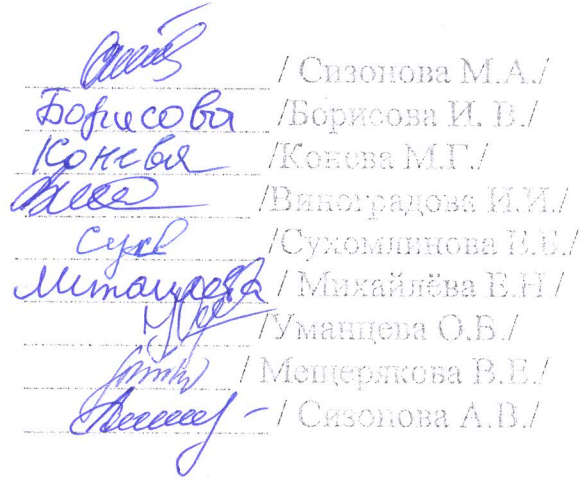 / Сизонова М.А./
Борисова /Борисова И. В./
Конева /Конева М.Г./
/Виноградова И.И./
Сухв /Сухомлинова Е.Б./
Михайлёва / Михайлёва Е.Н./
/Уманцева О.В./
/ Мещерякова В.Е./
/ Сизонова А.В./